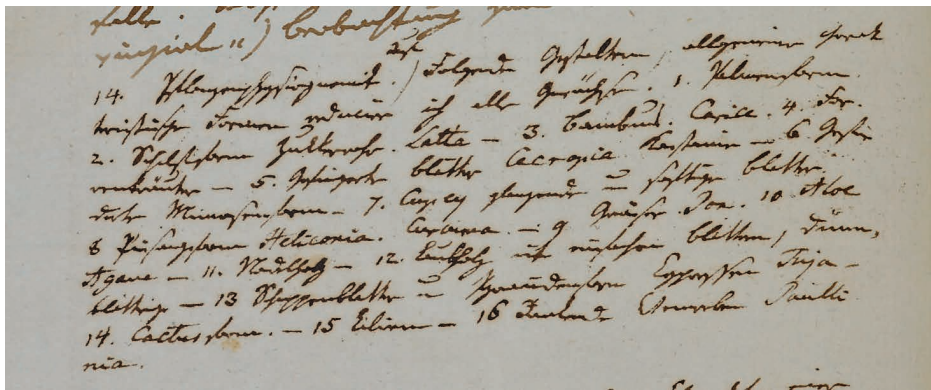 falle.
) beobachtung
14. Pflanzenphysiognomik. auf) Folgende Gestalten, allgemeine charak
teristische Formen reducire ich alle Gewächse. 1. Palmenform.
2. Schilfform Zukkerrohr. Latta – 3. Bambus. Carica. 4. Far-
renkräuter – 5. Gefingerte blätter Cecropia Kastanie – 6 Gefie
derte Mimosenform – 7. glänzende u saftige blätter.
8 Pisangform Heliconia. – 9 Gräser Poa. 10 Aloe
Agave – 11. Nadelholz – 12. Laubholz mit einfachen blättern, dünn-
blättrig – 13 Schuppenblätter u Cypressen Tuja –
14. Cactusform. – 15 Lilien – 16 Rankende Gewächse Paulli
nia.